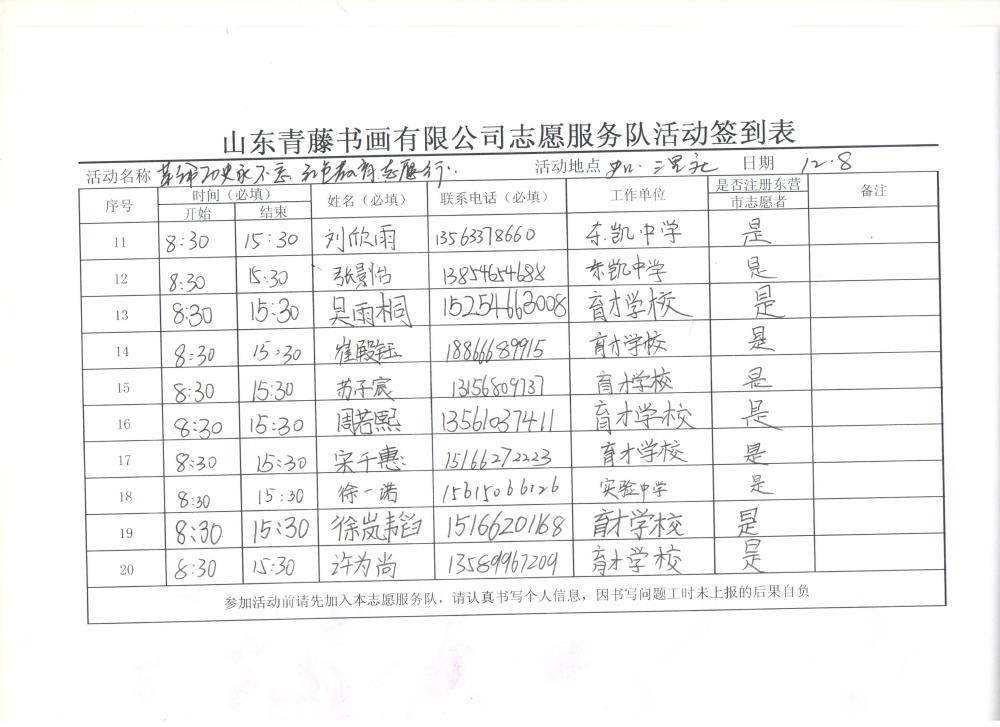 山东青藤书画有限公司志愿服务队活动签到表
活动名称 革命历史永不忘 红色教育志愿行 活动地点 史口·三里社 日期 12.8
序号 时间（必填） 姓名（必填） 联系电话（必填） 工作单位 是否注册东营市志愿者 备注
开始 结束
11 8:30 15:30 刘欣雨 13563378660 东凯中学 是
12 8:30 15:30 张景怡 13854654688 东凯中学 是
13 8:30 15:30 吴雨桐 15254663008 育才学校 是
14 8:30 15:30 崔殿钰 18866689915 育才学校 是
15 8:30 15:30 苏子宸 13156809737 育才学校 是
16 8:30 15:30 周若熙 13561037411 育才学校 是
17 8:30 15:30 宋千惠 15166272223 育才学校 是
18 8:30 15:30 徐一诺 15615066126 实验中学 是
19 8:30 15:30 徐岚韬 15166201168 育才学校 是
20 8:30 15:30 许为尚 13589967209 育才学校 是
参加活动前请先加入本志愿服务队，请认真书写个人信息，因书写问题工时未上报的后果自负